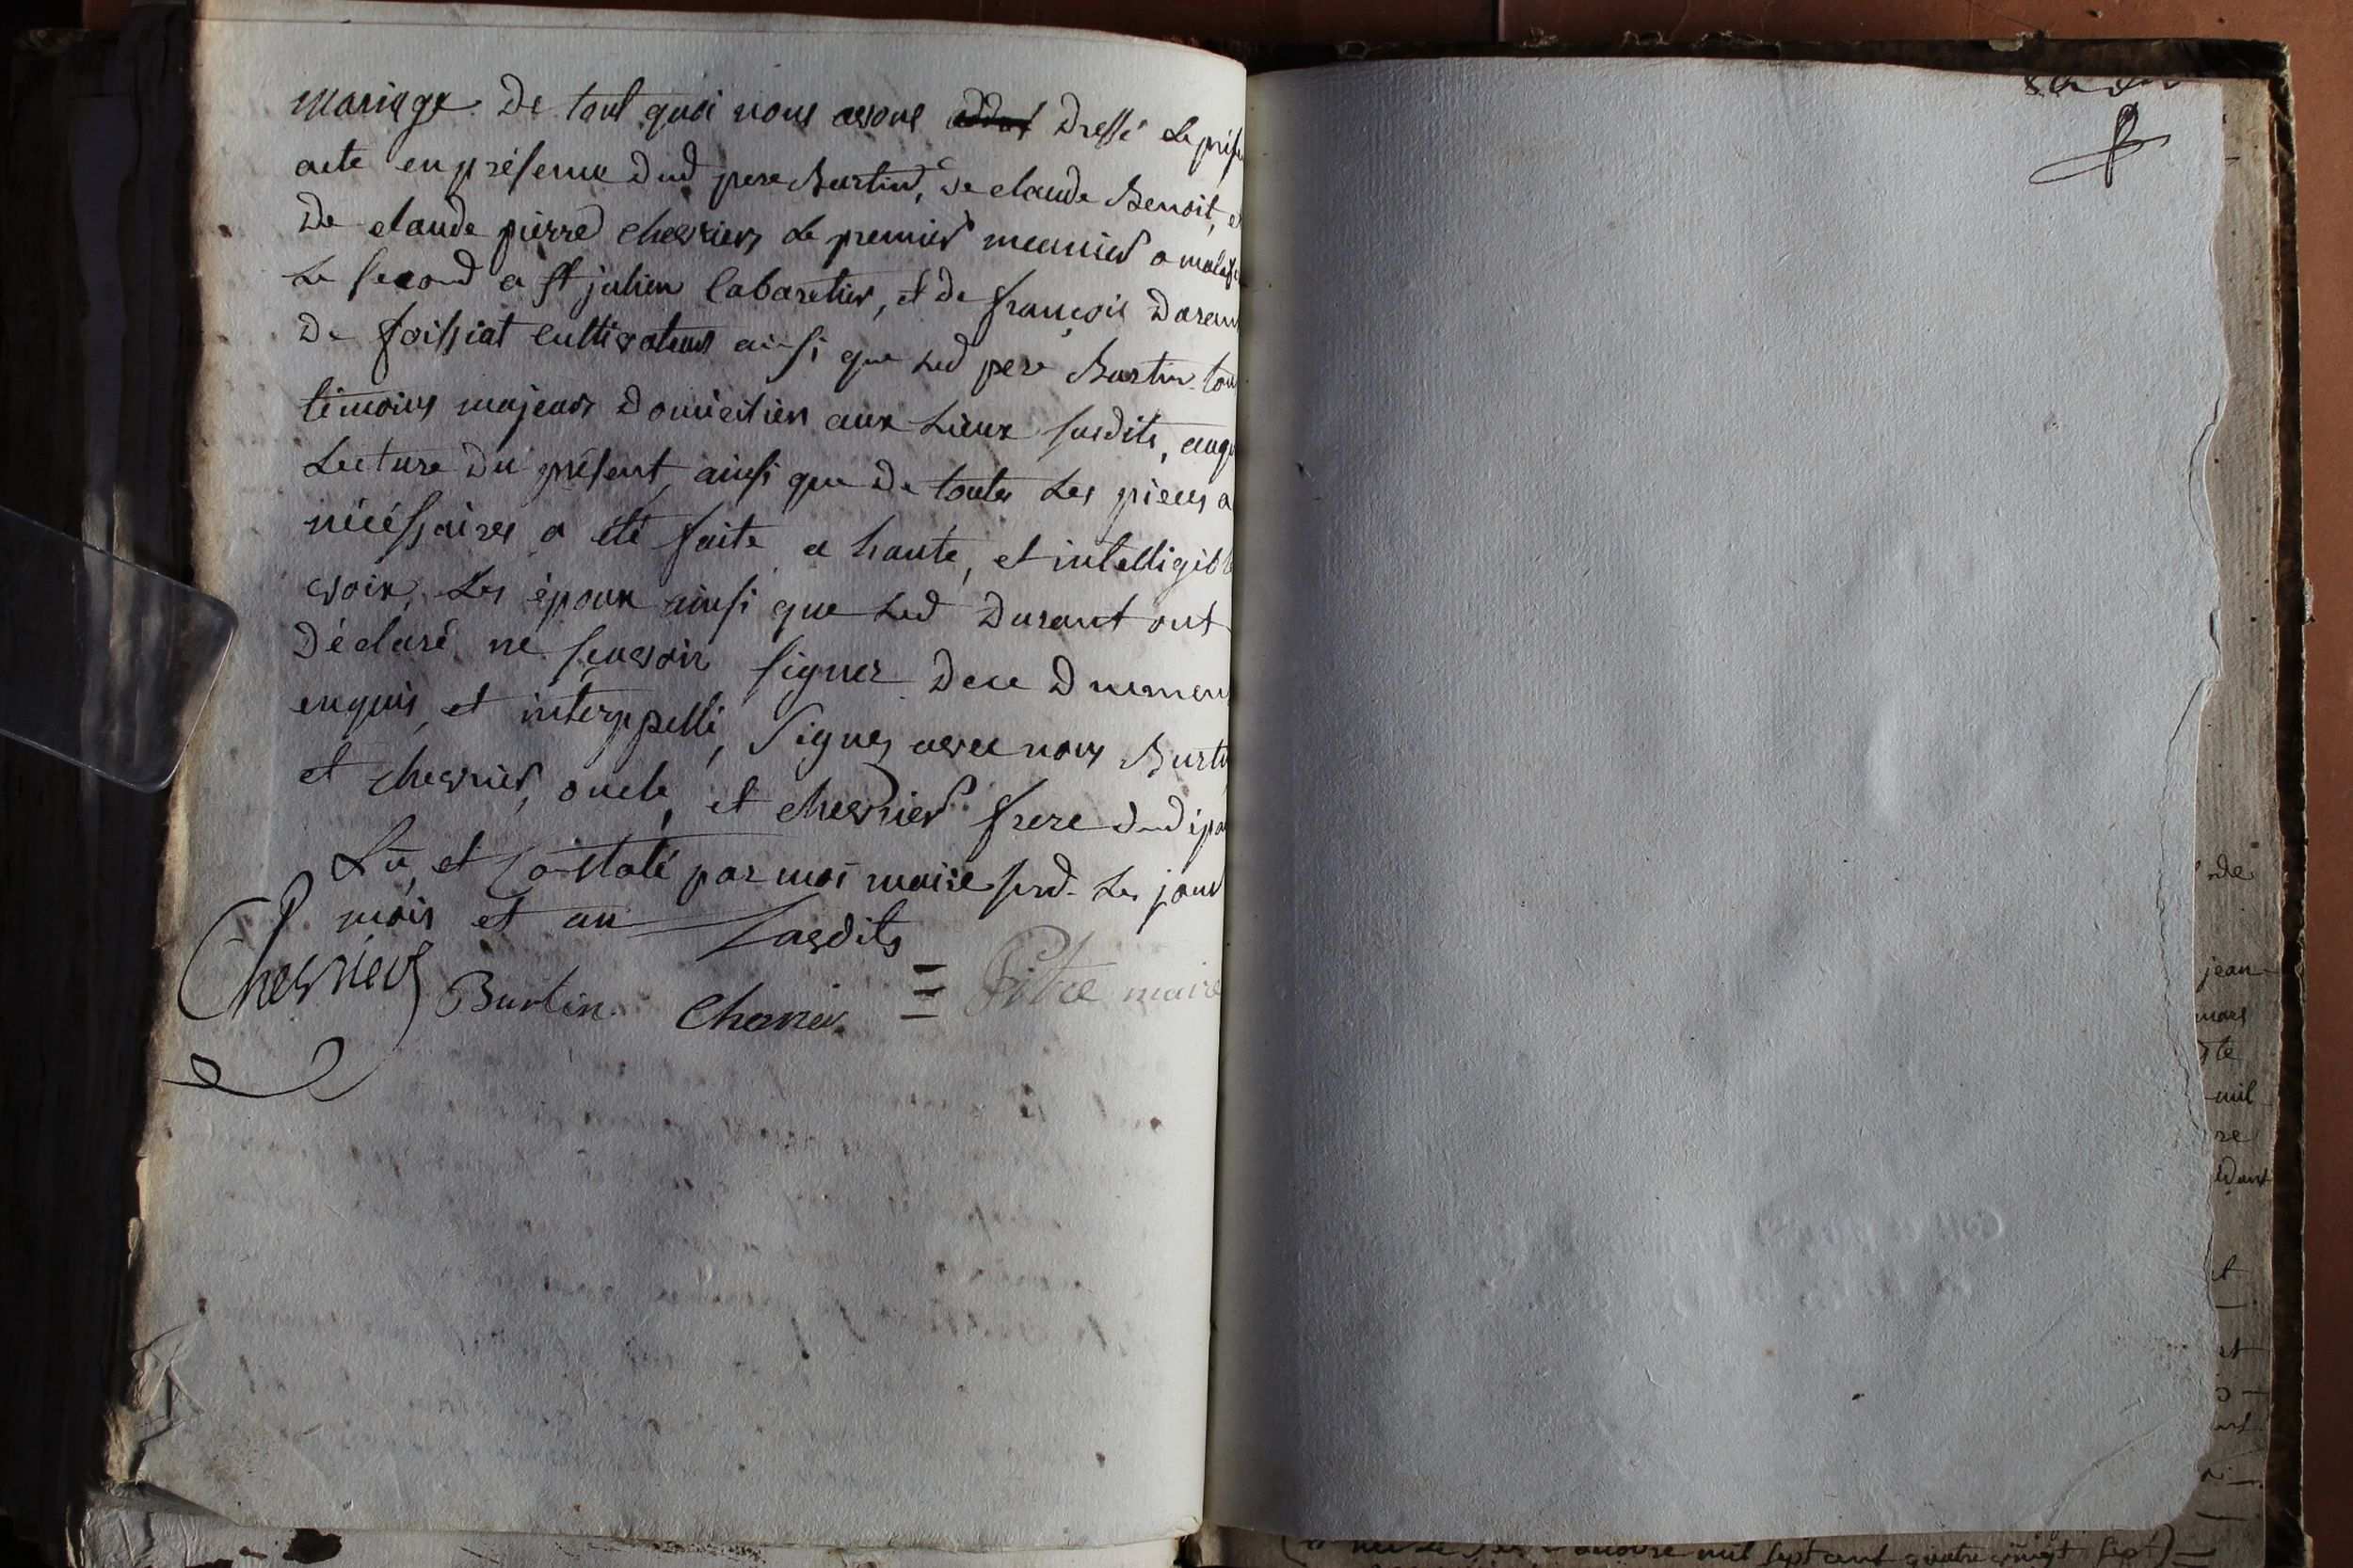 mariage. De tout quoi nous avons dressé le prés
acte en présence dud pere Burtin, de claude Benoit, et
De claude pierre chevrier, le premier meunier a
Le second a st julien Cabaretier, et de françois Duran
De foissiat cultivateur ainsi que led pere Burtin. tou
témoins majeurs domiciliés aux Lieux susdits,
Lecture du présent, ainsi que de toutes Les pieces a
nécéssaires a été faite a haute, et intelligibl
voix, Les époux ainsi que Led Durant ont
Déclaré ne sçavoir signer de ce duemen
enquis, et interppellé, Signés avec nous Burti
et chevrier, oncle, et chevrier frere dud épo
Lû, et Constaté par moi maire susd. Les jour
mois et an Susdits
Chevrier Burtin Chevrier = Pitre maire
de
jean
mars
te
mil
re
dant
et
et
mil sept cent quatre vingt sept)